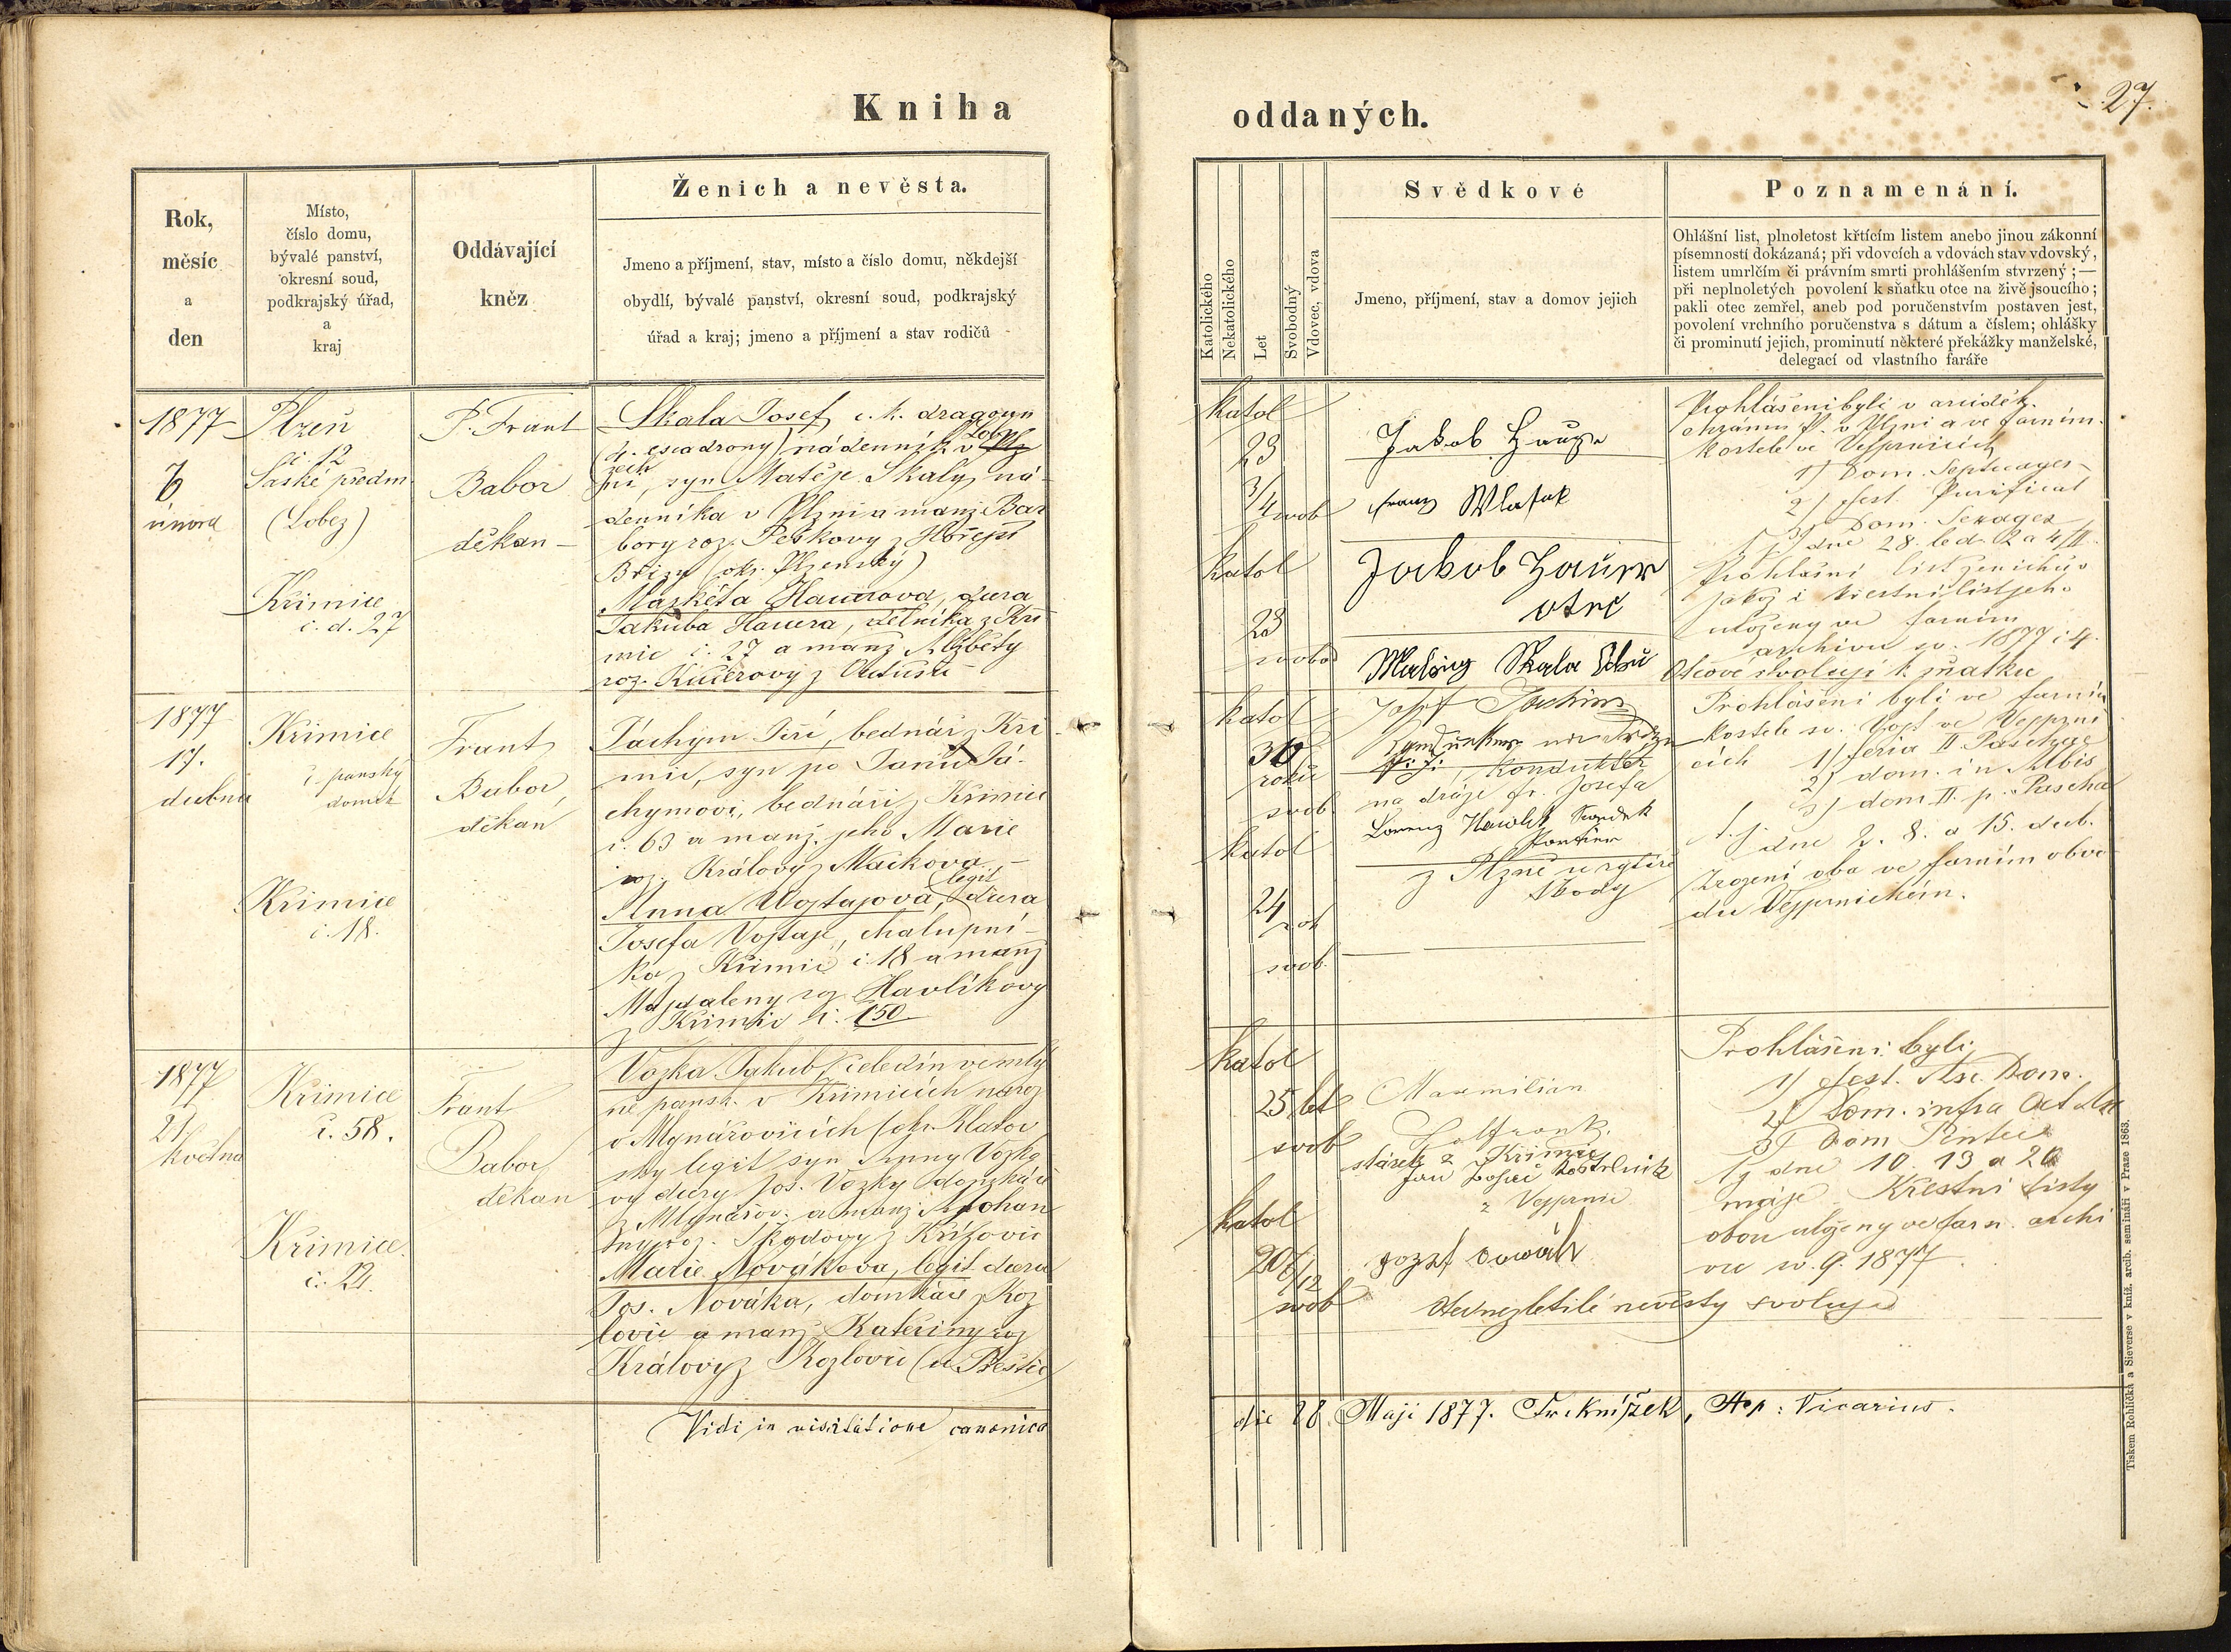 Kniha
oddaných.
27.
Rok,
měsíc
a
den
Místo,
číslo domu,
bývalé panství,
okresní soud,
podkrajský úřad,
a
kraj
Oddávající
kněz
Ženich a nevěsta.
Jmeno a příjmení, stav, místo a číslo domu, někdejší
obydlí, bývalé panství, okresní soud, podkrajský
úřad a kraj; jmeno a příjmení a stav rodičů
Katolického
Nekatolického
Let
Svobodný
Vdovec, vdova
Svědkové
Jmeno, příjmení, stav a domov jejich
Poznamenání.
Ohlášní list, plnoletost křtícím listem anebo jinou zákonní
písemností dokázaná; při vdovcích a vdovách stav vdovský,
listem umrlčím či právním smrti prohlášením stvrzený; —
při neplnoletých povolení k sňatku otce na živě jsoucího;
pakli otec zemřel, aneb pod poručenstvím postaven jest,
povolení vrchního poručenstva s dátum a číslem; ohlášky
či prominutí jejich, prominutí některé překážky manželské,
delegací od vlastního faráře
1877
února
Plzeň
č. 12
Saské předm.
(Lobez)
Křimice
č. d. 27
P. Frant
Babor
děkan
Skala Josef, c. k. dragoun
(4. escadrony) nádenník v
syn Matěje Skaly, ná-
denníka v Plzni a manž. Bar
bory roz. Peškovy z Hořejší
Břízy (okr. Plzenský)
Markéta Hauerova, dcera
Jakuba Hauera, dělníka z Kři
mic č. 27 a manž. Alžběty
roz. Kučerovy z
katol
23
3/4 svob
katol
23
svobod
Jakob
Franz Wlasak
Jakob Hauer
otec
Skala
Prohlášeni byli v arciděk.
chrámu P. v Plzni a ve farním
kostele ve Vejprnicích
1) Dom. Septuages
2) fest. Purificat
3) Dom. Sexages
t. j. dne 28. led. 2 a 4/II.
Prohlášní list ženichův
jakož i křestní list jeho
uloženy ve farním
archivu 1877 č 4.
Otcové svolují k sňatku
1877
17.
dubna
Křimice
č. panský
domek
Křimice
č. 18.
Frant
Babor,
děkan
Jáchym Jiří, bednář z Kři
mic, syn po Janu Já-
chymovi, bednáři z Křimic
č. 63 a manž. jeho Marie
roz. Královy z Mackova
legit
Anna Vojtajová, dcera
Josefa Vojtaje, chalupní-
ka z Křimic č 18 a manž
Majdaleny roz. Havlíkovy
z Křimic č. 150
katol
30
roků
svob.
katol
24
rok
svob.
Josef Jachim
konduktér
na dráze Fr. Josefa
Lorenz
z Plzně
Prohlášeni byli ve farním
kostele sv. Vojt ve Vejprni
cích 1) feria II Paschae
2) dom. in Albis
3) dom II. p. Pascha
t. j. dne 2. 8. a 15. dub.
Zrozeni oba ve farním obvo
du Vejprnickém.
1877
21
května
Křimice
č. 58.
Křimice
č. 21.
Frant
Babor,
děkan
Vozka Jakub, čeledín ve mlý
ně pansk. v Křimicích naroz
v Mlynářovicích (okr. Klatov
ský legit syn Anny Vozko
vy dcery Jos. Vozky domkáře
z Mlynářov. a manž Johan
ny roz. Škodovy z Křížovic
Marie Nováková, legit dcera
Jos. Nováka, domkáře z Koz
lovic a manž Kateřiny roz
Královy z Kozlovic (u Přeštic)
katol
25 let
svob
katol
20 6/12
svob
Maxmilian
stárek z Křimic
Jan
z Vejprnic
Prohlášeni byli
1) fest. Asc. Dom.
2) Dom. infra Oct Asc
3) Dom Pentec
t. j. dne 10. 13 a 20
máje. Křestní listy
obou uloženy ve farn. archi
vu 1877.
Otec nezletilé nevěsty svoluje
Vidi in visitatione canonica
die 28 Maji 1877. Fr. Knížek, Aep: Vicarius.
Tiskem Rohlíčka a Sieverse v kníž. arcib. semináři v Praze 1863.